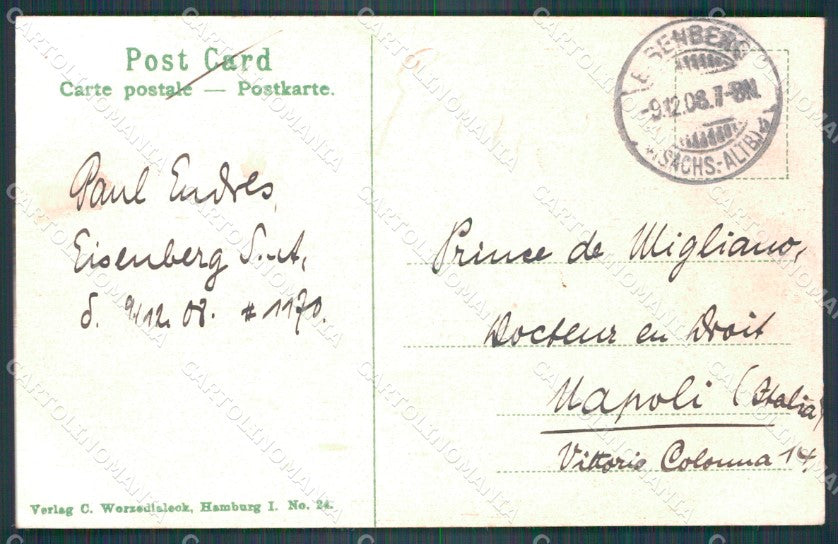 Post Card
Carte postale — Postkarte.
EISENBERG
-9.12.08.7-8N.
(SACHS.-ALTB.)
Paul Endres,
Eisenberg S.-A,
d. 9/12. 08. # 1170.
Prince de Migliano,
Docteur en Droit
Napoli (Italia)
Vittorio Colonna 14.
Verlag C. Worzedialeck, Hamburg I. No. 24.
CARTOLINOMANIA